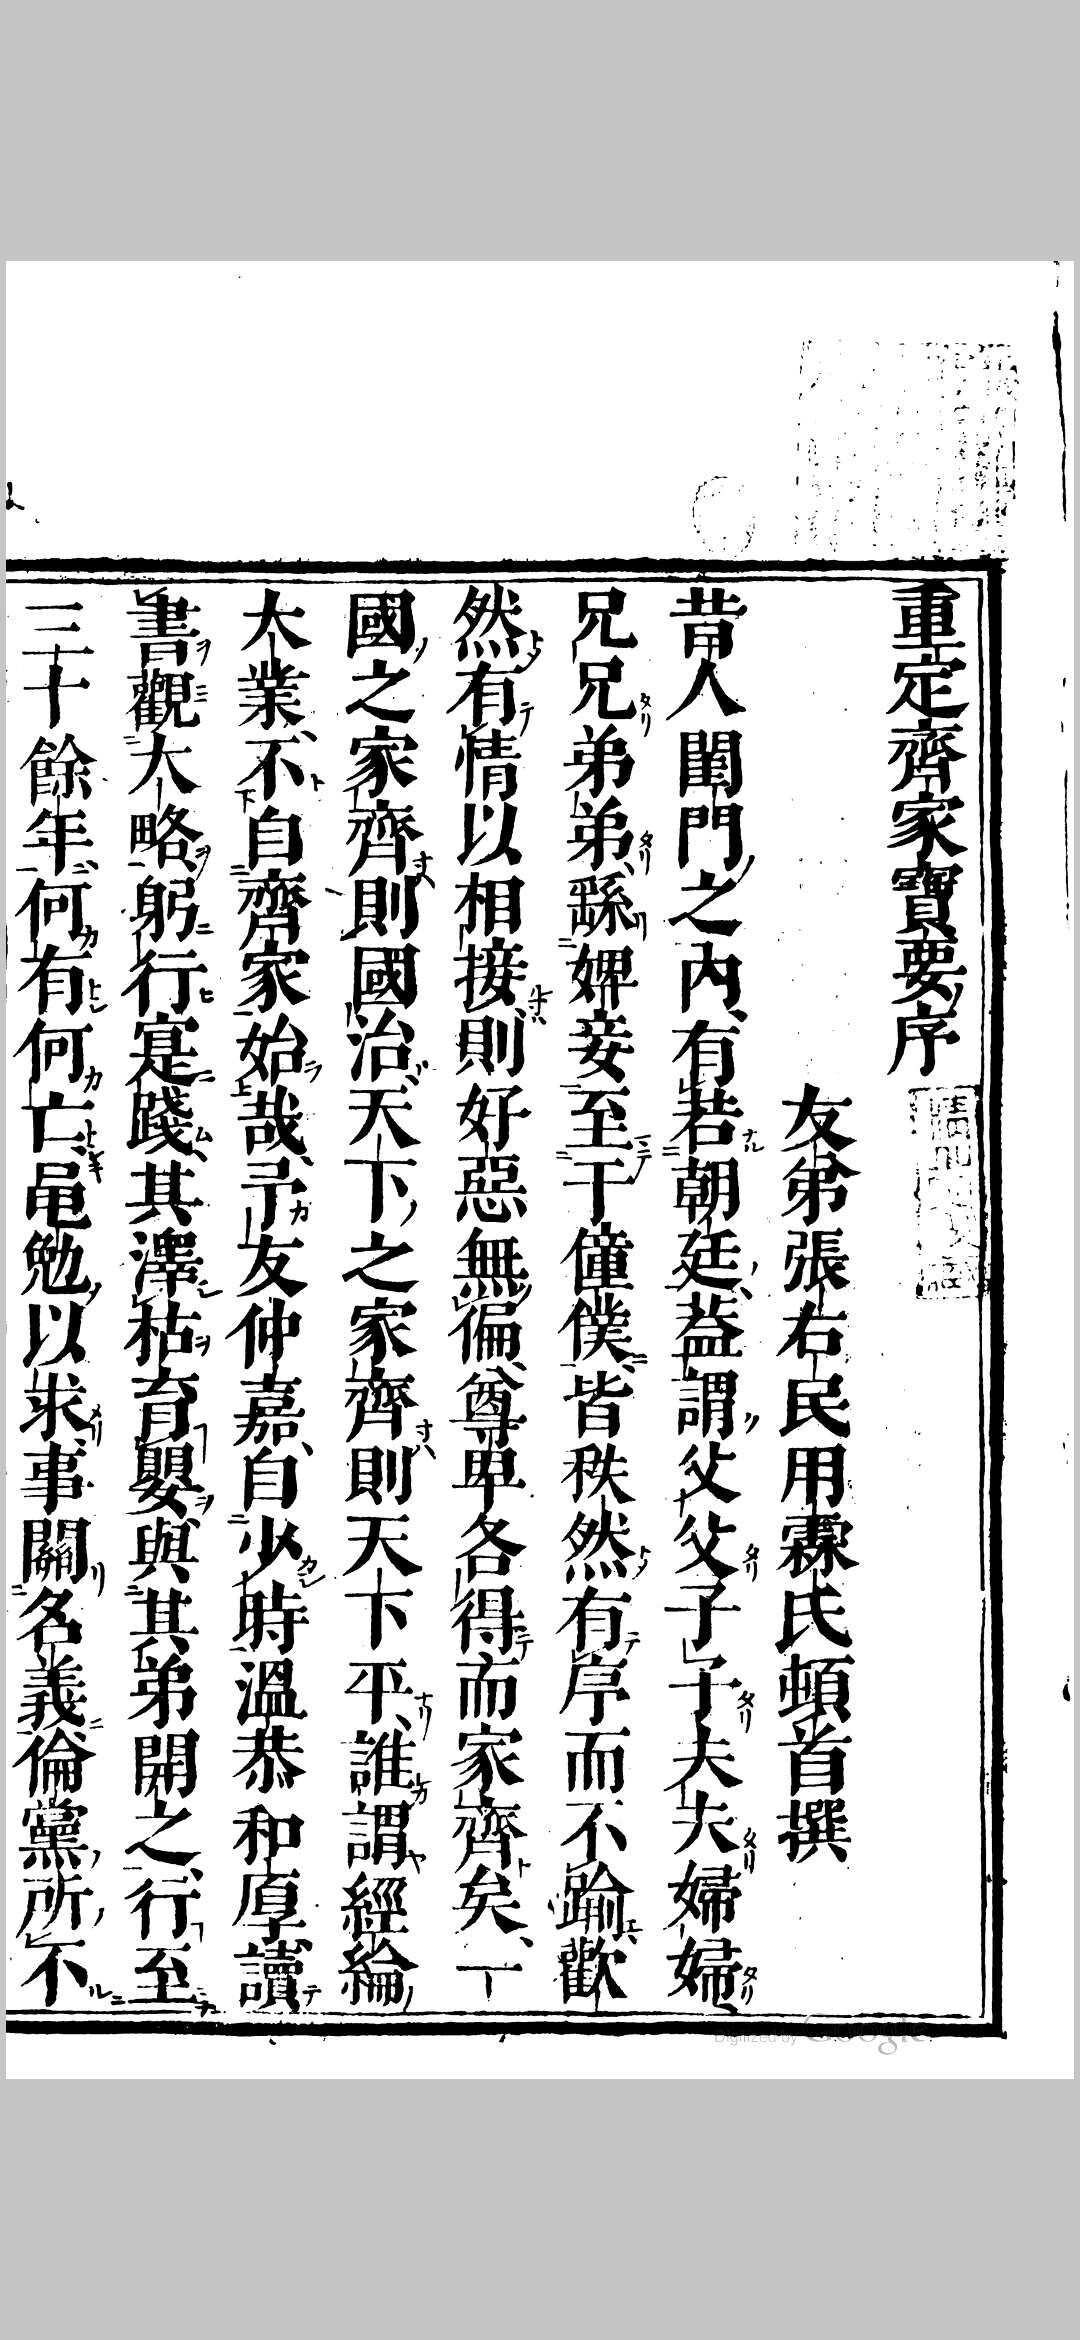 重定齊家寶要序
友弟張右民用霖氏頓首撰
昔人閨門之內有若朝廷葢謂父父子子夫夫婦婦
兄兄弟弟繇婢妾至于僮僕皆秩然有序而不踰歡
然有情以相接則好惡無徧尊卑各得而家齊矣一
國之家齊則國治天下之家齊則天下平誰謂經綸
大業不自齊家始哉予友仲嘉自少時溫恭和厚讀
書觀大略躬行寔踐其澤枯育嬰與其弟開之行至
三十餘年何有何亡黽勉以求事關名義倫黨所不
Digitized by Google